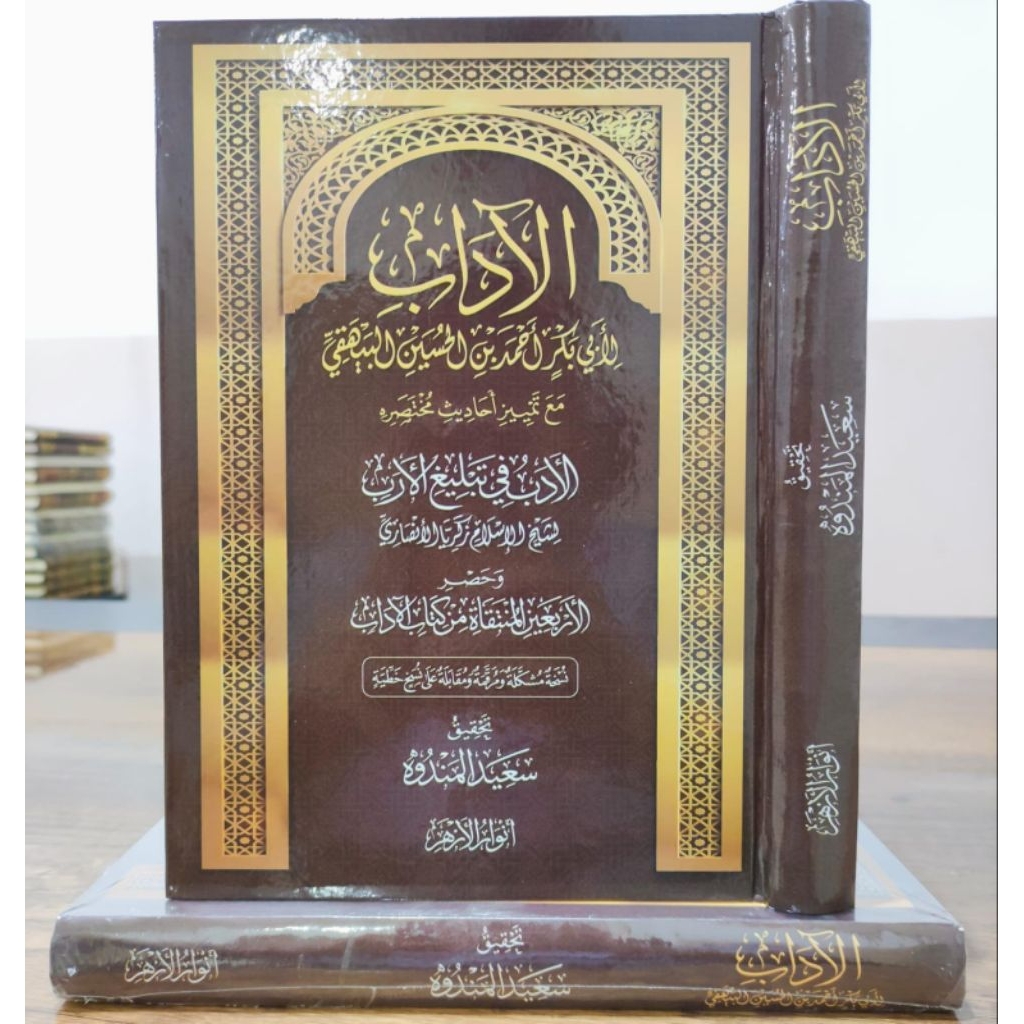 الآدَابِ
لِأَبِي بَكْرٍ أَحْمَدَ بْنِ الْحُسَيْنِ الْبَيْهَقِيِّ
مَعَ تَمْيِيزِ أَحَادِيثِ مُخْتَصَرِهِ
الأَدَبُ فِي تَبْلِيغِ الأَرَبِ
لِشَيْخِ الإِسْلَامِ زَكَرِيَّا الأَنْصَارِيِّ
وَحَصْرِ
الأَرْبَعِينَ الْمُنْتَقَاةِ مِنْ كِتَابِ الآدَابِ
نُسْخَةٌ مُشَكَّلَةٌ وَمُرَقَّمَةٌ وَمُقَابَلَةٌ عَلَى نُسَخٍ خَطِّيَّةٍ
تَحْقِيقُ
سَعِيدِ الْمَنْدُوهِ
أَنْوَارُ الأَزْهَرِ
الآدَابِ
لِأَبِي بَكْرٍ أَحْمَدَ بْنِ الْحُسَيْنِ الْبَيْهَقِيِّ
تَحْقِيقُ
سَعِيدِ الْمَنْدُوهِ
أَنْوَارُ الأَزْهَرِ
الآدَابِ
لِأَبِي بَكْرٍ أَحْمَدَ بْنِ الْحُسَيْنِ الْبَيْهَقِيِّ
تَحْقِيقُ
سَعِيدِ الْمَنْدُوهِ
أَنْوَارُ الأَزْهَرِ